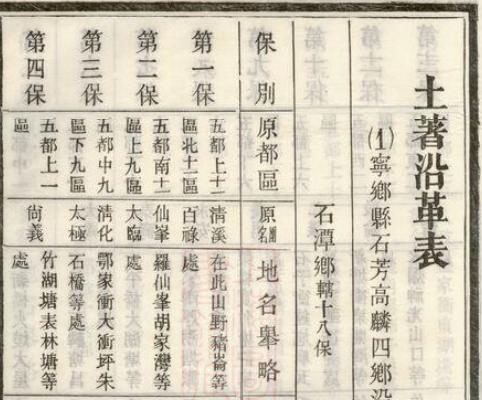 土著沿革表
(1)寧鄉縣石芳高麟四鄉沿
石潭鄉轄十八保
保別 原都區 原團名 地名舉略
第一保 五都上十二 清溪 在此山野豬崙等
區北十一區 百祿 處
第二保 五都南十一 仙峯 羅仙峯胡家灣等
區上九區 太臨 處
第三保 五都中九 清化 鄂家衝大衝坪朱
區下九區 太極 石橋等處
第四保 五都上一 尙義 竹湖塘表林塘等
區 處